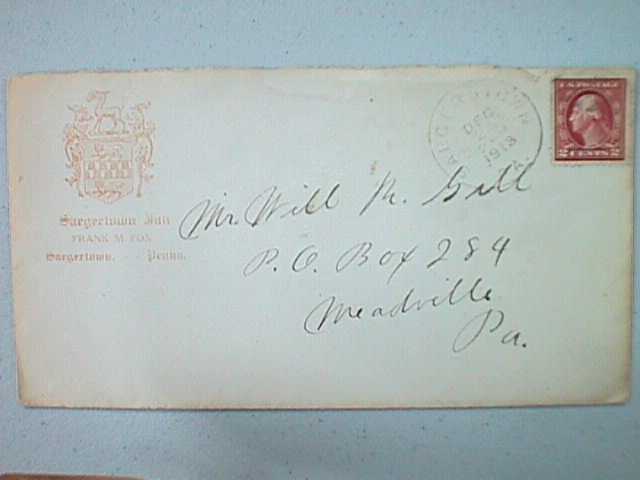 Saegertown Inn
FRANK M. FOX
Saegertown, Penna.
SAEGERTOWN
DEC
1913
U.S. POSTAGE
2 CENTS 2
Mr. Will M. Gill
P.O. Box 284
Meadville
Pa.